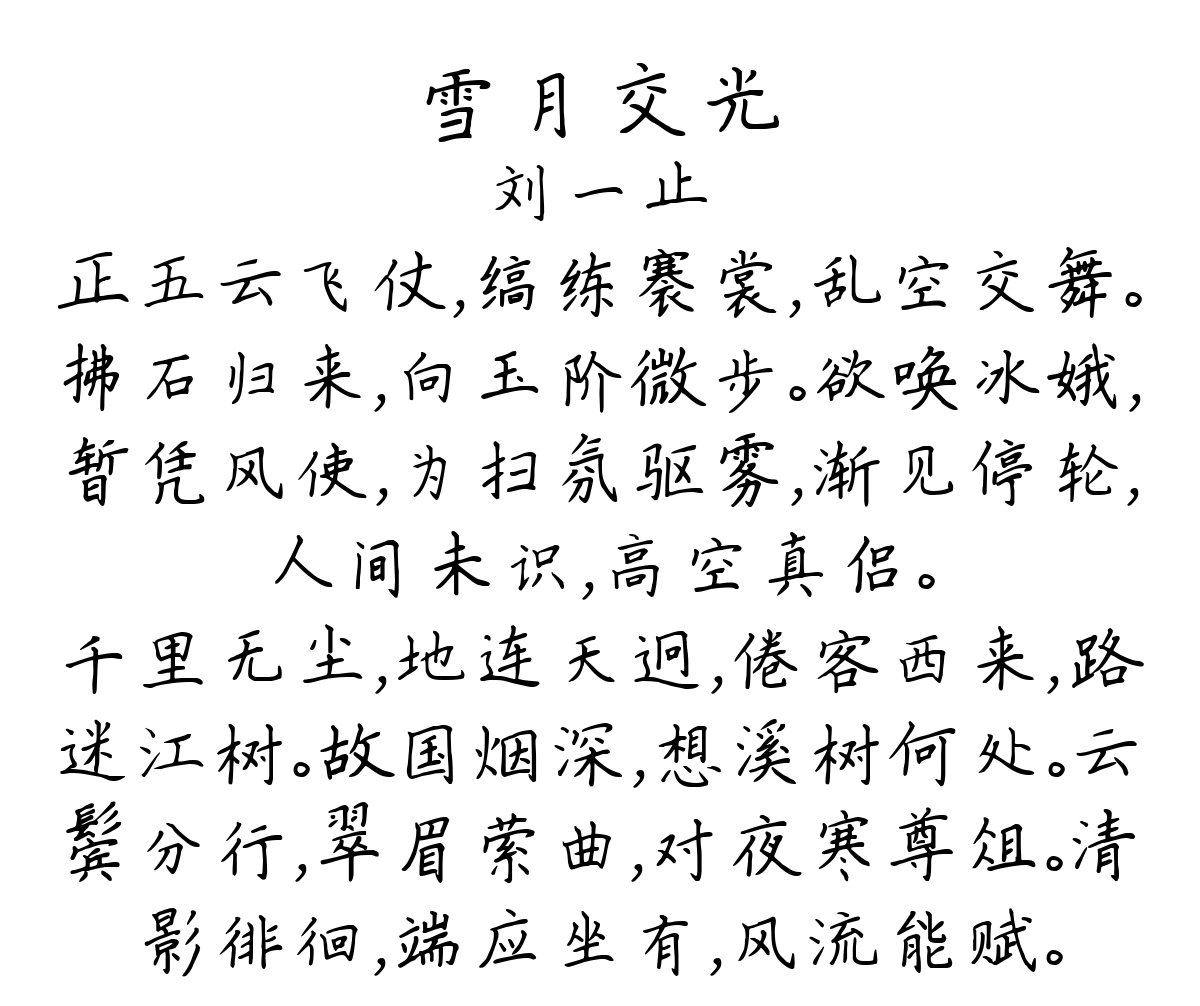 雪月交光
刘一止
正五云飞仗,缟练褰裳,乱空交舞。
拂石归来,向玉阶微步。欲唤冰娥,
暂凭风使,为扫氛驱雾,渐见停轮,
人间未识,高空真侣。
千里无尘,地连天迥,倦客西来,路
迷江树。故国烟深,想溪树何处。云
鬓分行,翠眉萦曲,对夜寒尊俎。清
影徘徊,端应坐有,风流能赋。